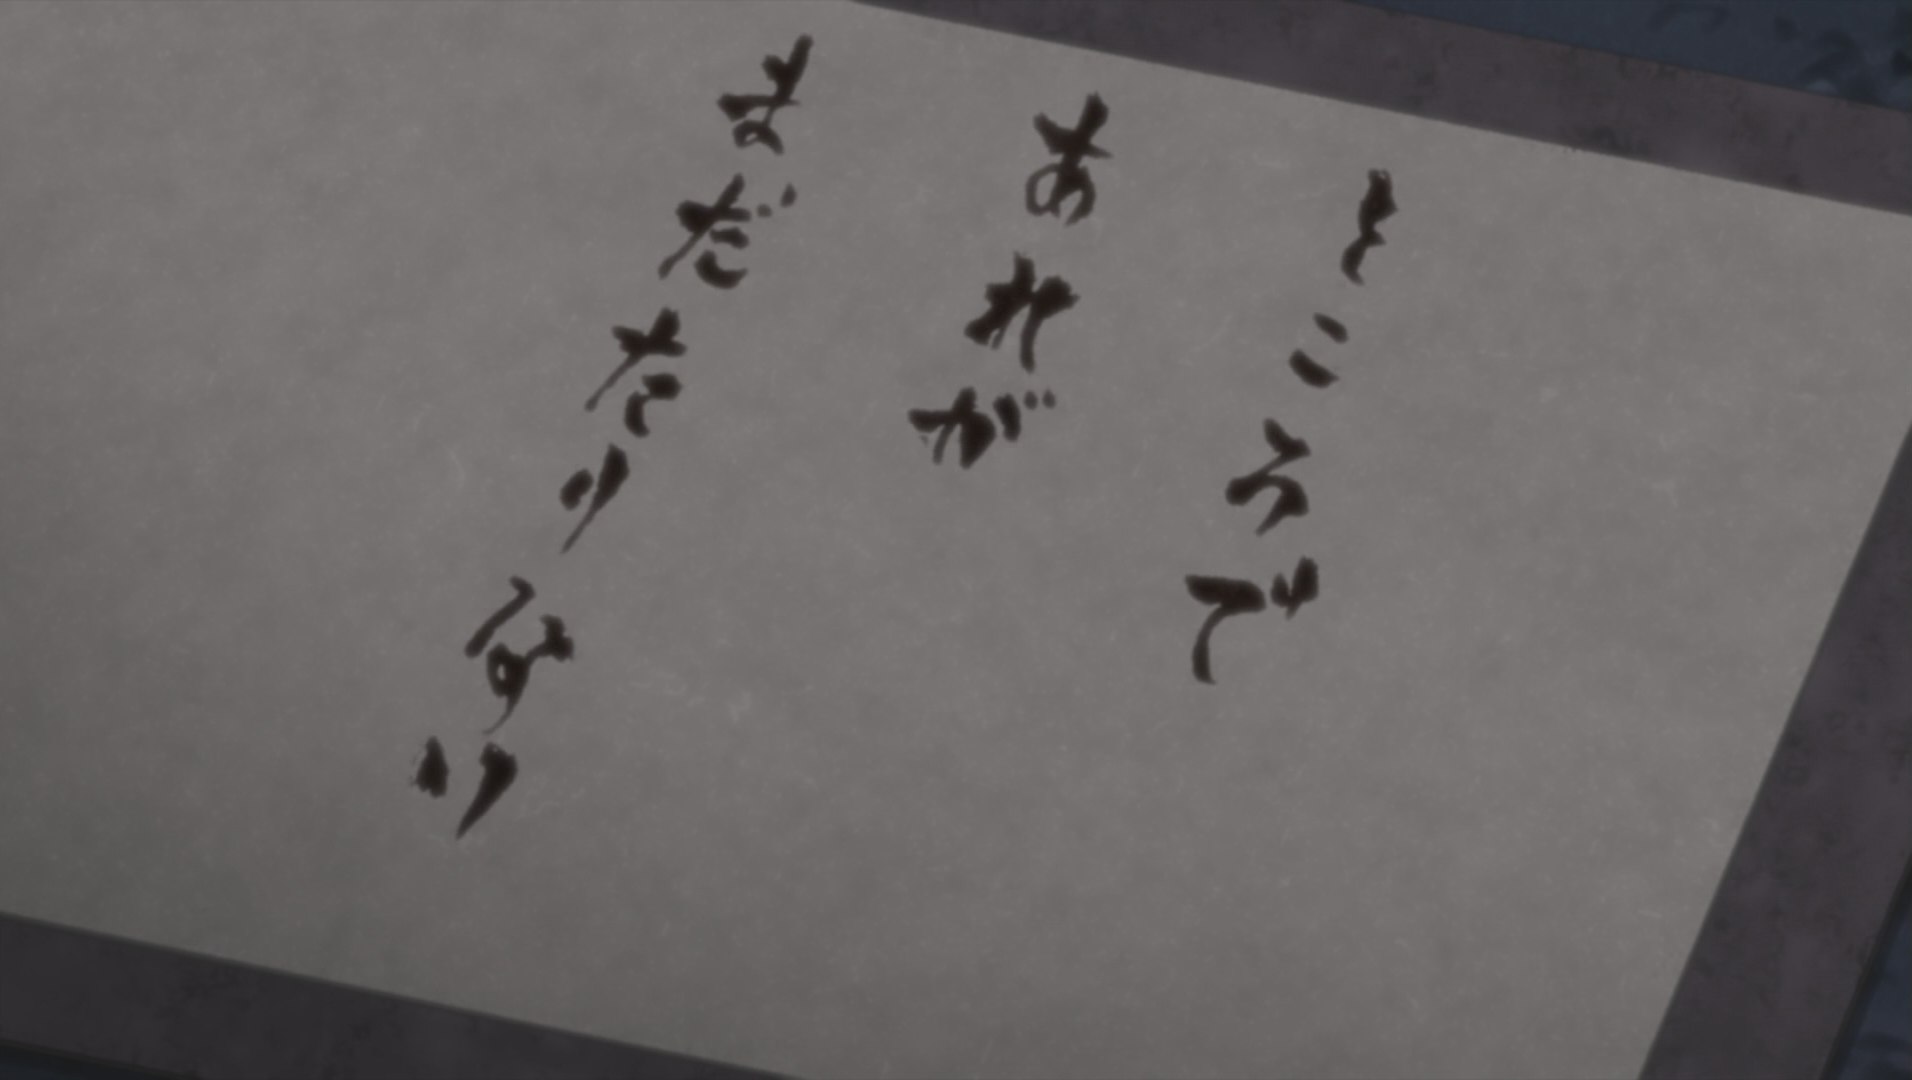 ところで
あれが
まだたりぬり